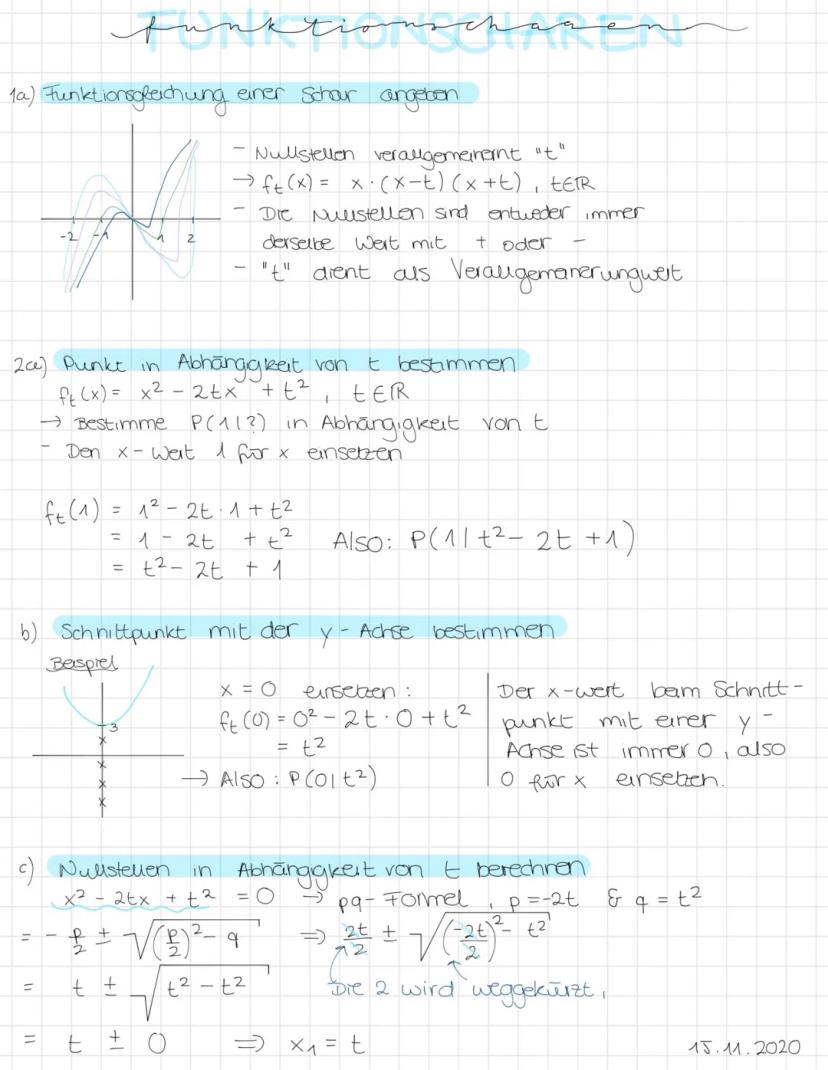 FUNKTIONSCHAREN
funktionscharen
1a) Funktionsgleichung einer Schar angeben
- Nullstellen verallgemeinernt "t"
→ fₜ(x) = x·(x-t)(x+t), t∈ℝ
- Die Nullstellen sind entweder immer
derselbe Wert mit + oder -
- "t" dient als Verallgemeinerungwert
-2 -1 1 2
2a) Punkt in Abhängigkeit von t bestimmen
fₜ(x) = x² - 2tx + t², t∈ℝ
→ Bestimme P(1|?) in Abhängigkeit von t
- Den x-Wert 1 für x einsetzen
fₜ(1) = 1² - 2t·1 + t²
= 1 - 2t + t² Also: P(1|t² - 2t + 1)
= t² - 2t + 1
b) Schnittpunkt mit der y-Achse bestimmen
Beispiel
3
x = 0 einsetzen:
fₜ(0) = 0² - 2t·0 + t²
= t²
→ Also: P(0|t²)
Der x-wert beim Schnitt-
punkt mit einer y-
Achse ist immer 0, also
0 für x einsetzen.
c) Nullstellen in Abhängigkeit von t berechnen
x² - 2tx + t² = 0 → pq-Formel, p = -2t & q = t²
= - p/2 ± √((p/2)² - q) ⇒ 2t/2 ± √((-2t/2)² - t²)
= t ± √(t² - t²) Die 2 wird weggekürzt,
= t ± 0 ⇒ x₁ = t
15.11.2020